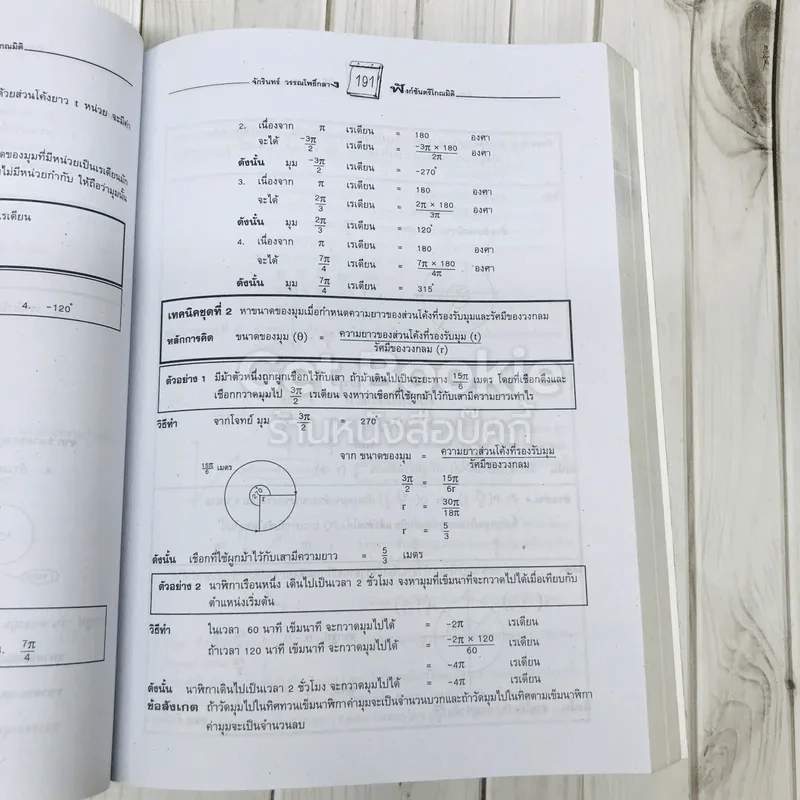 โกณมิติ
ด้วยส่วนโค้งยาว t หน่วย จะมีค่า
ขนาดของมุมที่มีหน่วยเป็นเรเดียนมัก
ไม่มีหน่วยกำกับ ให้ถือว่ามุมนั้น
เรเดียน
4. -120°
7π/4
จักรินทร์ วรรณโพธิ์กลาง 191 ฟังก์ชันตรีโกณมิติ
2. เนื่องจาก π เรเดียน = 180 องศา
จะได้ -3π/2 เรเดียน = -3π × 180/2π องศา
ดังนั้น มุม -3π/2 เรเดียน = -270°
3. เนื่องจาก π เรเดียน = 180 องศา
จะได้ 2π/3 เรเดียน = 2π × 180/3π องศา
ดังนั้น มุม 2π/3 เรเดียน = 120°
4. เนื่องจาก π เรเดียน = 180 องศา
จะได้ 7π/4 เรเดียน = 7π × 180/4π องศา
ดังนั้น มุม 7π/4 เรเดียน = 315°
เทคนิคชุดที่ 2 หาขนาดของมุมเมื่อกำหนดความยาวของส่วนโค้งที่รองรับมุมและรัศมีของวงกลม
หลักการคิด ขนาดของมุม (θ) = ความยาวของส่วนโค้งที่รองรับมุม (t)/รัศมีของวงกลม (r)
Get Bookie
ร้านหนังสือบุ๊คกี้
ตัวอย่าง 1 มีม้าตัวหนึ่งถูกผูกเชือกไว้กับเสา ถ้าม้าเดินไปเป็นระยะทาง 15π/6 เมตร โดยที่เชือกตึงและ
เชือกกวาดมุมไป 3π/2 เรเดียน จงหาว่าเชือกที่ใช้ผูกม้าไว้กับเสามีความยาวเท่าไร
วิธีทำ จากโจทย์ มุม 3π/2 270°
จาก ขนาดของมุม = ความยาวส่วนโค้งที่รองรับมุม/รัศมีของวงกลม
15π/6 เมตร
3π/2 = 15π/6r
r = 30π/18π
r = 5/3
ดังนั้น เชือกที่ใช้ผูกม้าไว้กับเสามีความยาว = 5/3 เมตร
ตัวอย่าง 2 นาฬิกาเรือนหนึ่ง เดินไปเป็นเวลา 2 ชั่วโมง จงหามุมที่เข็มนาทีจะกวาดไปได้เมื่อเทียบกับ
ตำแหน่งเริ่มต้น
วิธีทำ ในเวลา 60 นาที เข็มนาที จะกวาดมุมไปได้ = -2π เรเดียน
ถ้าเวลา 120 นาที เข็มนาที จะกวาดมุมไปได้ = -2π × 120/60 เรเดียน
= -4π เรเดียน
ดังนั้น นาฬิกาเดินไปเป็นเวลา 2 ชั่วโมง จะกวาดมุมไปได้ = -4π เรเดียน
ข้อสังเกต ถ้าวัดมุมไปในทิศทวนเข็มนาฬิกาค่ามุมจะเป็นจำนวนบวกและถ้าวัดมุมไปในทิศตามเข็มนาฬิกา
ค่ามุมจะเป็นจำนวนลบ